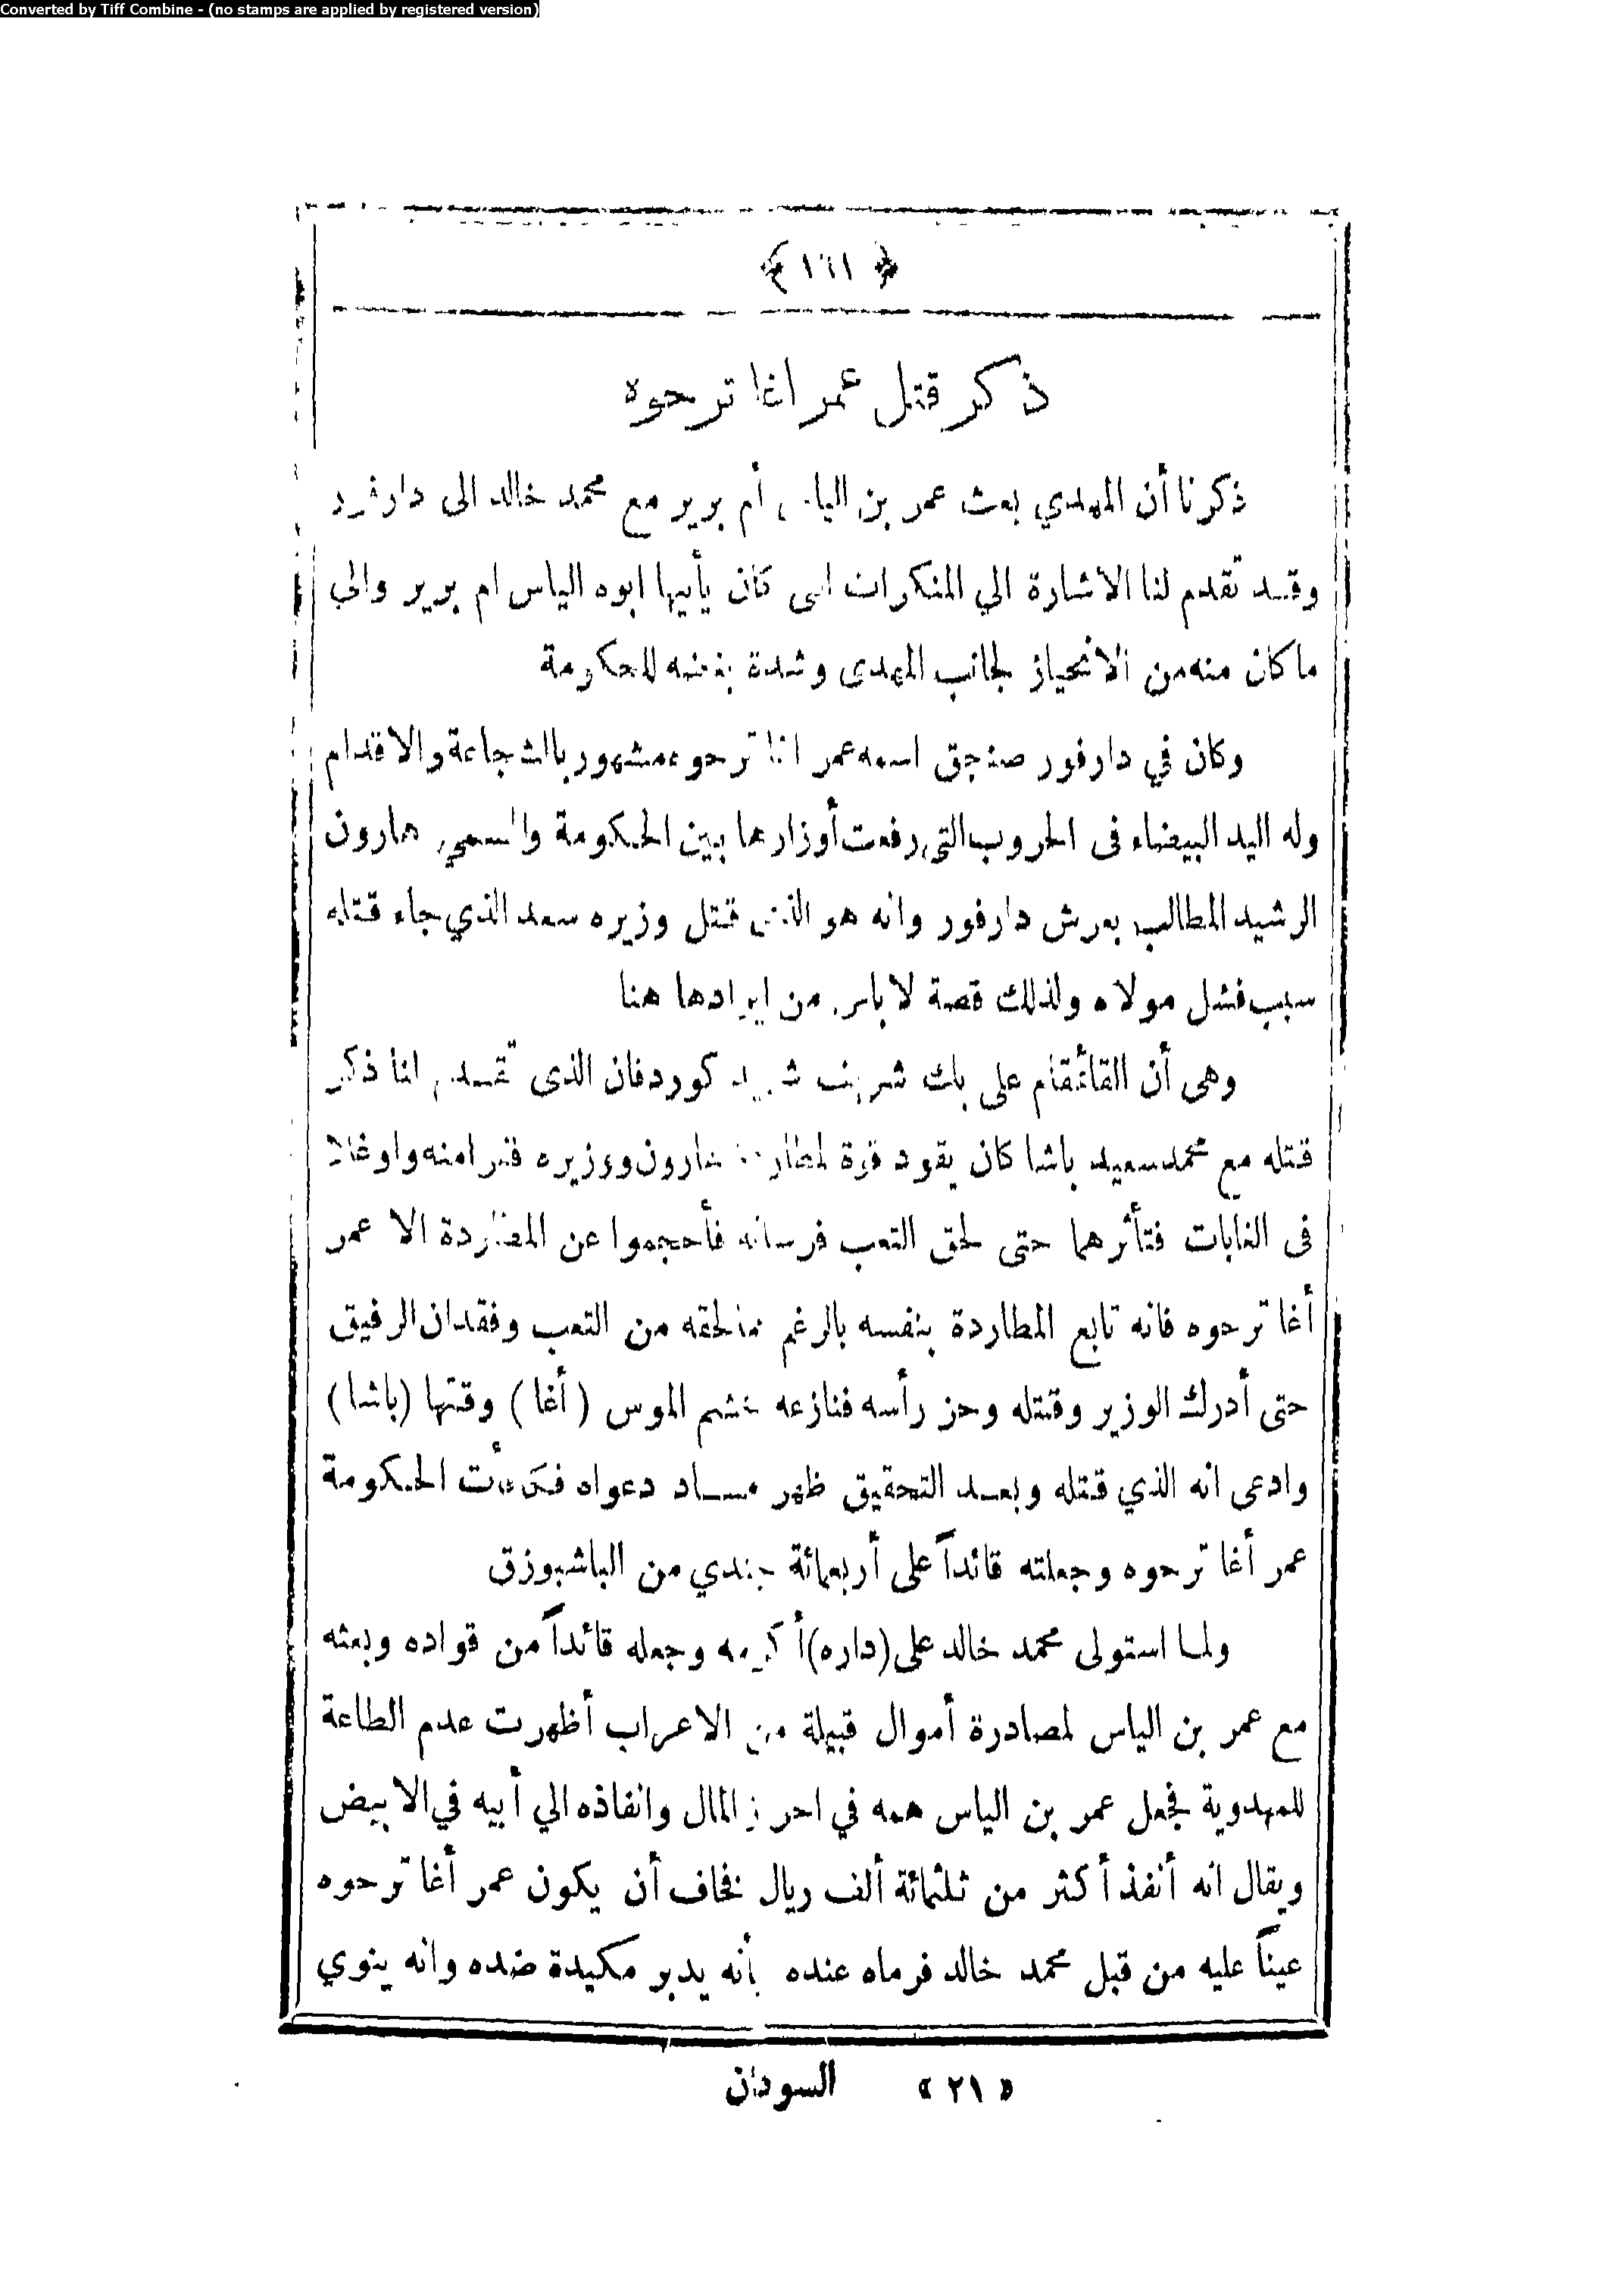 Converted by Tiff Combine - (no stamps are applied by registered version)
﴿ ١٦١ ﴾
ذكر قتل عمر اغا ترحوه
ذكرنا أن المهدي بعث عمر بن الياس أم برير مع محمد خالد الى دارفور
وقد تقدم لنا الاشارة الي المنكرات التى كان يأتيها ابوه الياس ام برير والي
ما كان منه من الانحياز لجانب المهدى وشدة بغضه للحكومة
وكان في دارفور صنجق اسمه عمر اغا ترحوه مشهور بالشجاعة والاقدام
وله اليد البيضاء فى الحروب التى رفعت أوزارها بين الحكومة والسمى هارون
الرشيد المطالب بعرش دارفور وانه هو الذى قتل وزيره سعد الذي جاء قتله
سبب فشل مولاه ولذلك قصة لا باس من ايرادها هنا
وهى أن القائمقام على بك شريف شهيد كوردفان الذى تقدم لنا ذكر
قتله مع محمد سعيد باشا كان يقود قوة لمطاردة هارون ووزيره ففرا منه واوغلا
فى الغابات فتأثرهما حتى لحق التعب فرسانه فأحجموا عن المطاردة الا عمر
أغا ترحوه فانه تابع المطاردة بنفسه بالرغم مما لحقه من التعب وفقدان الرفيق
حتى أدرك الوزير وقتله وحز رأسه فنازعه خشم الموس (أغا) وقتها (باشا)
وادعى انه الذي قتله وبعد التحقيق ظهر فساد دعواه فكافأت الحكومة
عمر أغا ترحوه وجعلته قائداً على أربعمائة جندي من الباشبوزق
ولما استولى محمد خالد على (داره) أكرمه وجعله قائداً من قواده وبعثه
مع عمر بن الياس لمصادرة أموال قبيلة من الاعراب أظهرت عدم الطاعة
للمهدوية فجعل عمر بن الياس همه في احراز المال وانفاذه الي أبيه في الابيض
ويقال انه أنفذ أكثر من ثلثمائة ألف ريال فخاف أن يكون عمر أغا ترحوه
عيناً عليه من قبل محمد خالد فرماه عنده بأنه يدبر مكيدة ضده وانه ينوي
« ٢١ » السودان